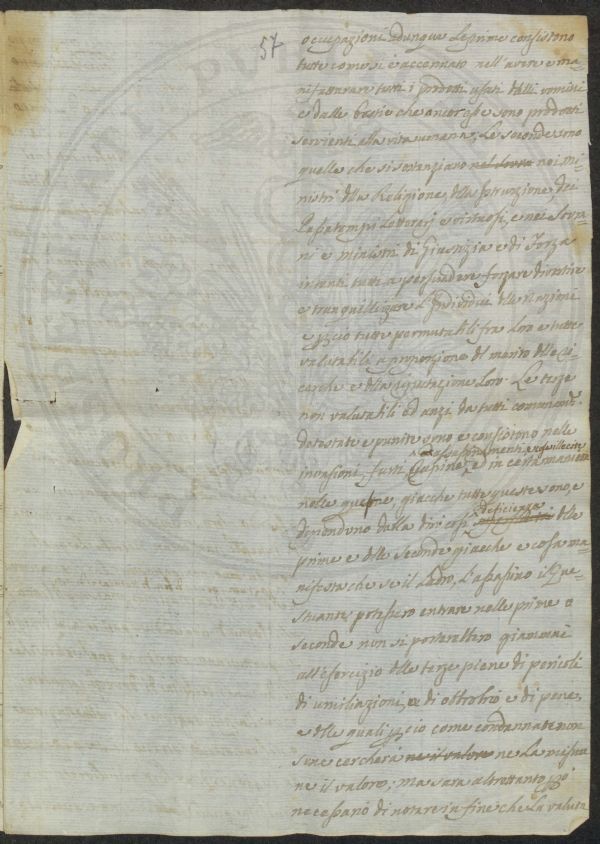 57
occupazioni adunque Le prime consistono
tutte come si è accennato nell'avere e ma-
nifatturare tutti i prodotti usati dalli uomini
e dalle bestie che ancor esse sono prodotti
servienti alla vita umana; Le seconde sono
quelle che si sostanziano nel sovra nei mi-
nistri della Religione, della Istruzione, dei
Passatempi Letterarj e virtuosi, e nei Sovra-
ni e ministri di Giustizia e di Forza
intenti tutti a persuadere forzare divertire
e tranquillizare L'Individui delle nazioni
e perciò tutte permutabili fra Loro e tutte
valutabili a proporzione del merito delle
cariche e della riputazione Loro. Le terze
non valutabili ed anzi da tutti comunem.
detestate e punite sono e consistono nelle
assassinamenti e cose illecite
invasioni, furti, rapine, ed in certa maniera
nelle guerre, giacche tutte queste sono, e
deficienza
dipendono dalla delle
prime e delle seconde giacche è cosa ma-
nifesta che se il Ladro, L'assassino il Que-
stuante, potessero entrare nelle prime e
seconde non si porterebbero giammai
all'esercizio delle terze piene di pericoli
di umiliazioni, di obbrobrio e di pene,
e delle quali perciò come condannate non
se ne cercherà ne il valore ne La
ne il valore; ma sarà altrettanto più
necessario di notare in fine che La valuta